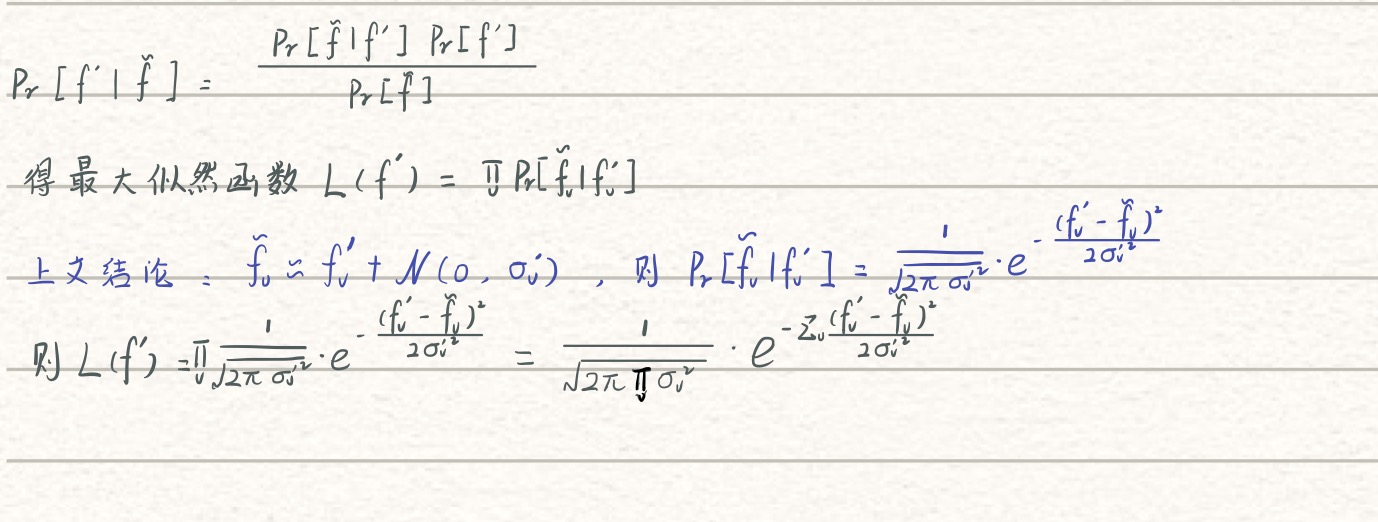 Pr[f′|f̃] = Pr[f̃|f′] Pr[f′] / Pr[f̃]
得最大似然函数 L(f′) = ∏_v Pr[f̃_v|f_v′]
上文结论：f̃_v ≈ f_v′ + N(0, σ_v′)，则 Pr[f̃_v|f_v′] = 1/√(2π σ_v′²) · e^(-(f_v′ - f̃_v)²/(2σ_v′²))
则 L(f′) = ∏_v 1/√(2π σ_v′²) · e^(-(f_v′ - f̃_v)²/(2σ_v′²)) = 1/√(2π ∏_v σ_v²) · e^(-Σ_v (f_v′ - f̃_v)²/(2σ_v′²))